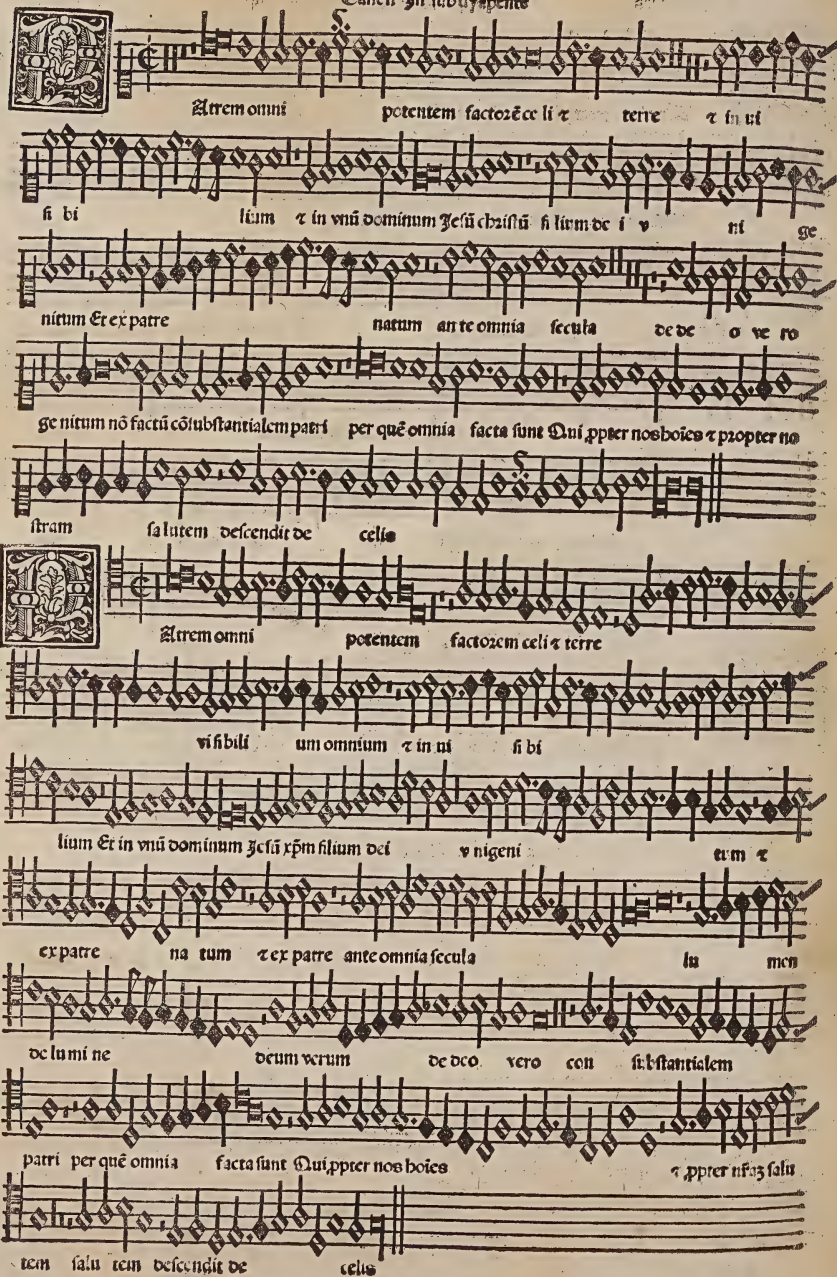 Canon In subdyapente
PAtrem omni potentem factorē ce li ⁊ terre ⁊ in ui
si bi lium ⁊ in vnū dominum Jesū christū fi lium de i v ni ge
nitum Et ex patre natum an te omnia secula de de o ve ro
ge nitum nō factū cōsubstantialem patri per quē omnia facta sunt Qui ꝓpter nos hoīes ⁊ propter no
stram sa lutem descendit de celis
PAtrem omni potentem factorem celi ⁊ terre
visibili um omnium ⁊ in ui si bi
lium Et in vnū dominum Jesū xp̄m filium dei v nigeni tum ⁊
ex patre na tum ⁊ ex patre ante omnia secula lu men
de lu mi ne deum verum de deo vero con substantialem
patri per quē omnia facta sunt Qui ꝓpter nos hoīes ⁊ ꝓpter nr̄aꝫ salu
tem salu tem descendit de celis